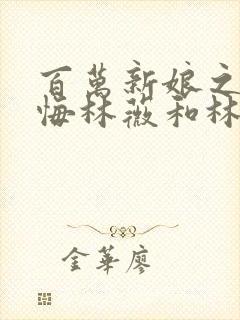 百萬新娘之
悔林薇和林
金華廖